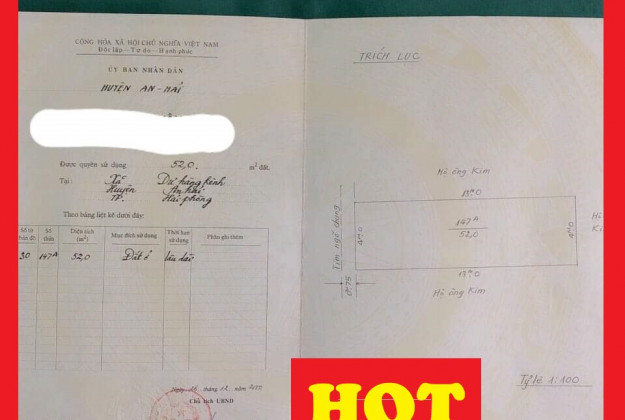 CỘNG HÒA XÃ HỘI CHỦ NGHĨA VIỆT NAM
Độc lập — Tự do — Hạnh phúc
ỦY BAN NHÂN DÂN
HUYỆN AN-HẢI
Được quyền sử dụng 52,0 m² đất.
Tại: Xã Dư hàng kênh
Huyện An hải
TP. Hải phòng
Theo bảng liệt kê dưới đây:
Số tờ bản đồ
Số thửa
Diện tích (m²)
Mục đích sử dụng
Thời hạn sử dụng
Phần ghi thêm
30 147A 52,0 Đất ở lâu dài
Ngày tháng 12 năm
Chủ tịch UBND
TRÍCH LỤC
Hộ ông Kim
13m0
Tim ngõ chung
4m0
147A
52,0
4m0
Hộ
Ki
13m0
0m75
Hộ ông Kim
Tỷ lệ 1:100
HOT